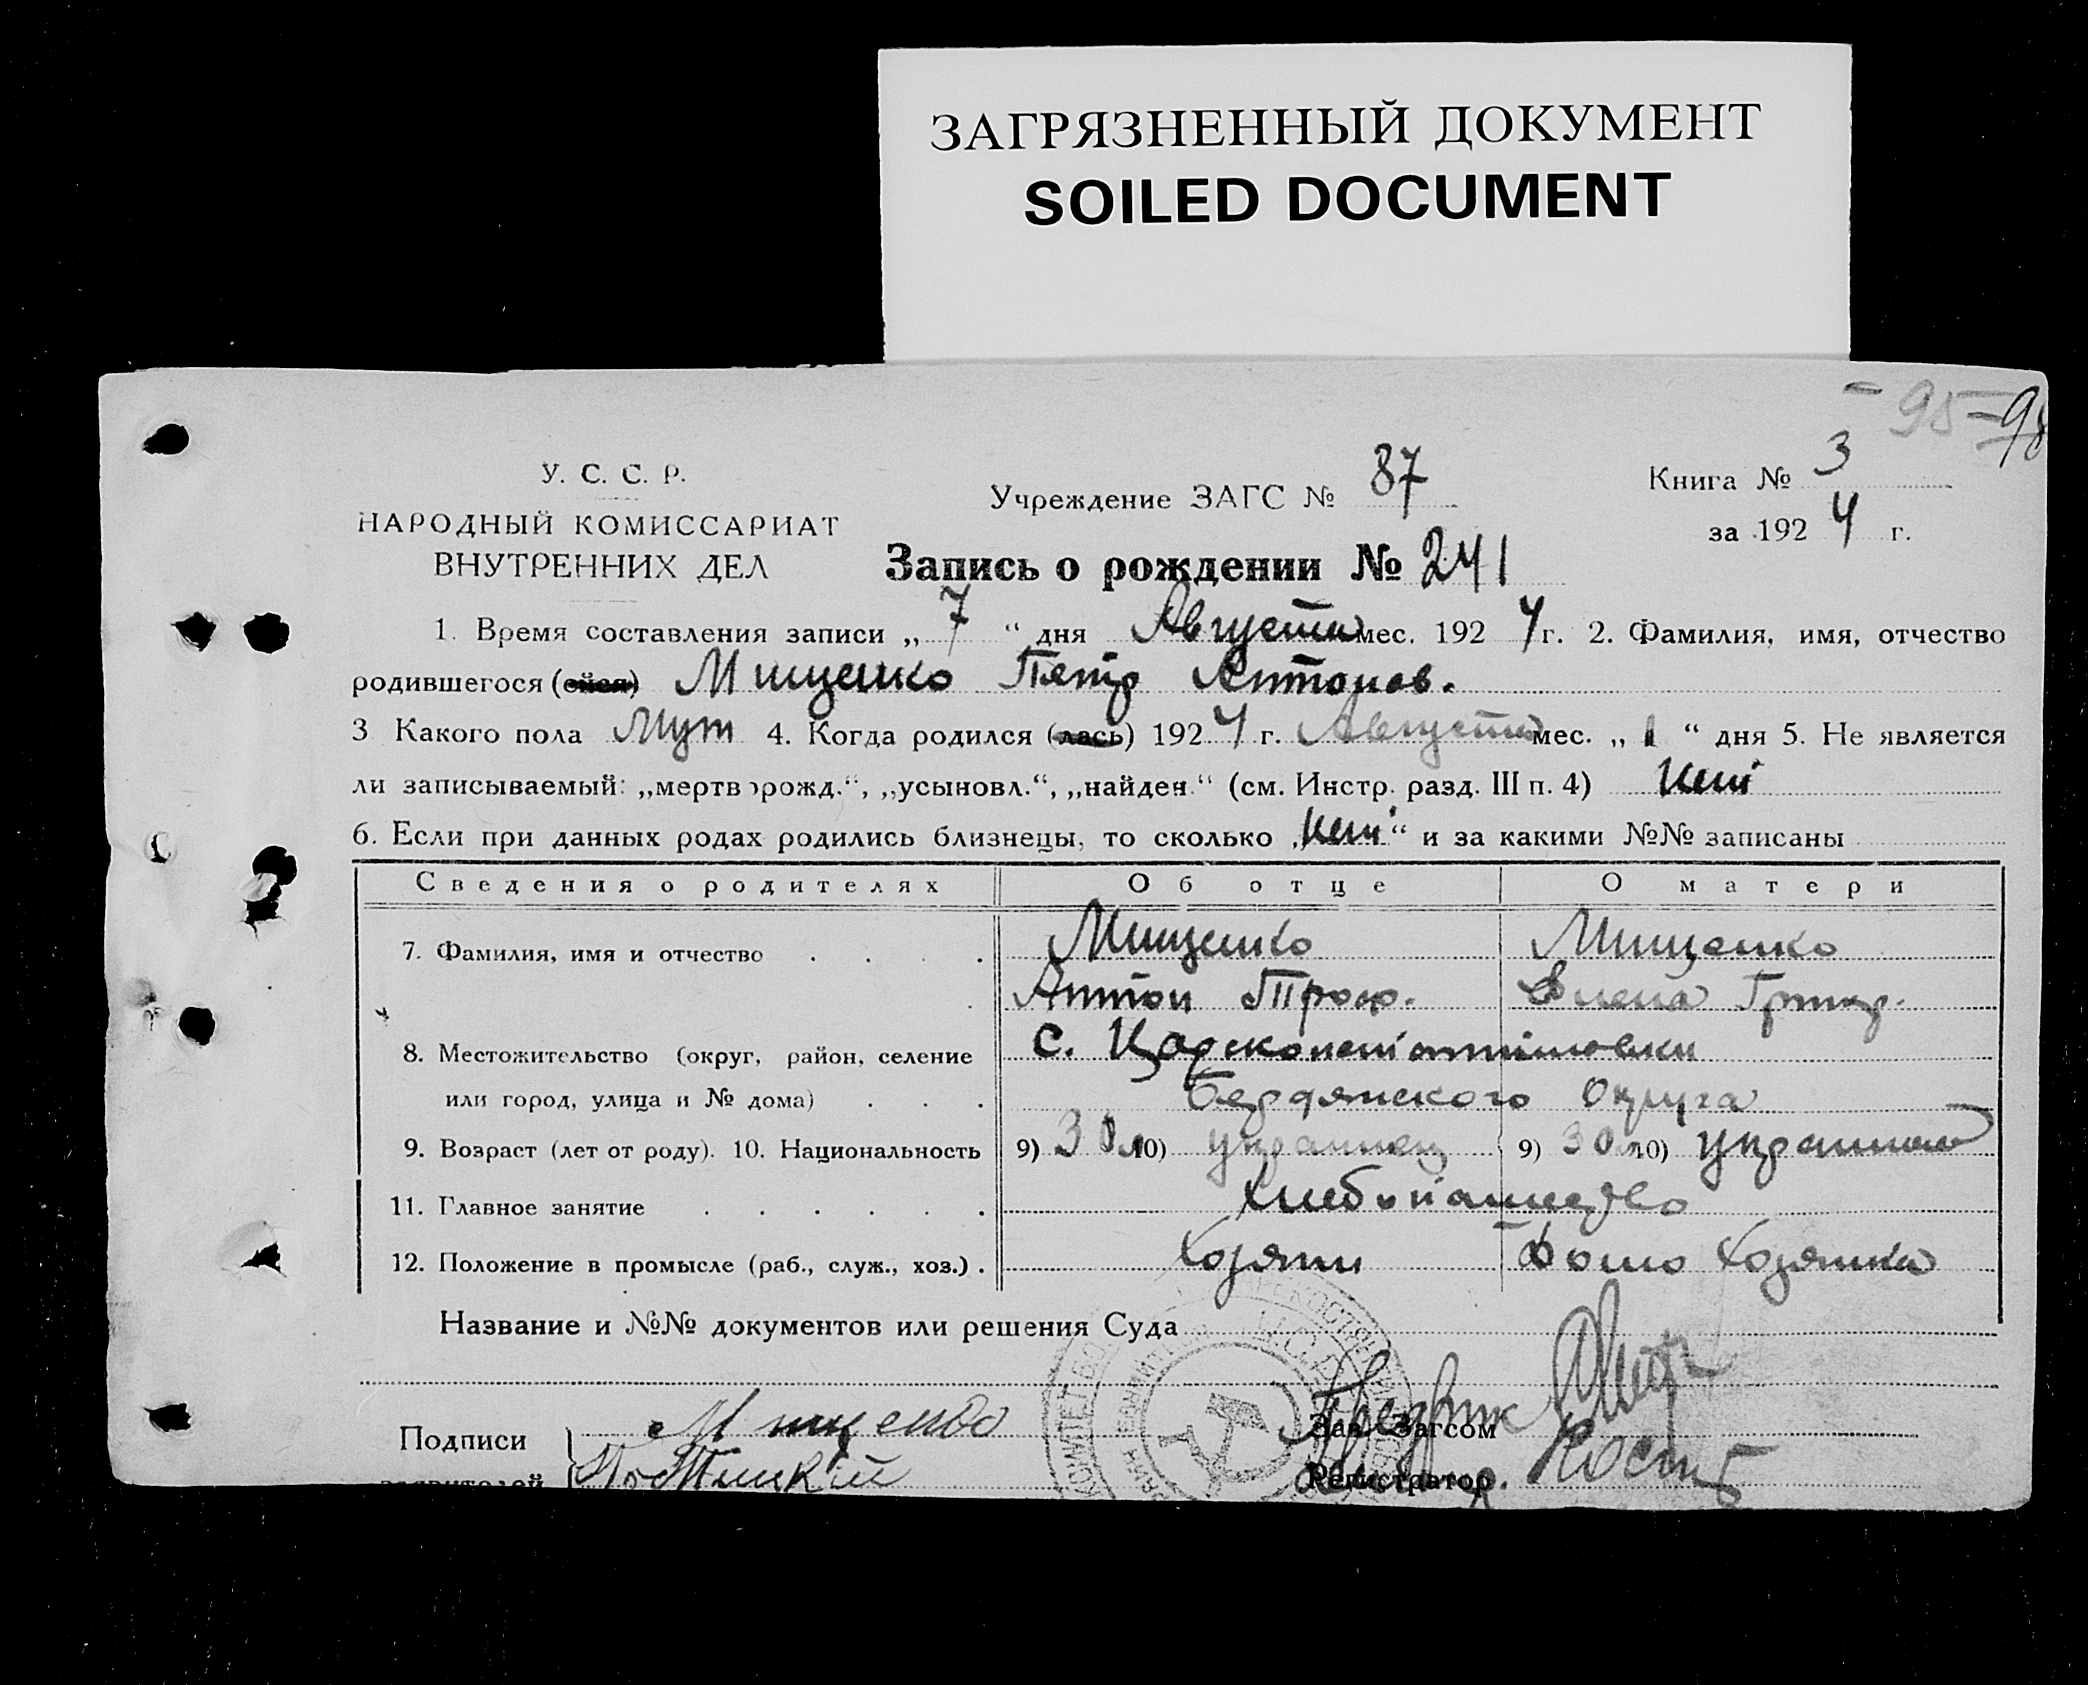 ЗАГРЯЗНЕННЫЙ ДОКУМЕНТ
SOILED DOCUMENT
95 98
У. С. С. Р.
НАРОДНЫЙ КОМИССАРИАТ
ВНУТРЕННИХ ДЕЛ
Учреждение ЗАГС № 87
Книга № 3
за 1924 г.
Запись о рождении № 241
1. Время составления записи „ 7 “ дня Августа мес. 1924 г. 2. Фамилия, имя, отчество
родившегося (ойся) Мищенко Петр Антонов.
3 Какого пола Муж 4. Когда родился (лась) 1924 г. Августа мес. „ 1 “ дня 5. Не является
ли записываемый: „мертворожд.“, „усыновл.“, „найден.“ (см. Инстр. разд. III п. 4) Нет
6. Если при данных родах родились близнецы, то сколько „Нет“ и за какими №№ записаны
Сведения о родителях Об отце О матери
7. Фамилия, имя и отчество Мищенко Мищенко
Антон Троф. Елена Григор.
8. Местожительство (округ, район, селение с. Царсконстантиновки
или город, улица и № дома) Бердянского Округа
9. Возраст (лет от роду). 10. Национальность 9) 30 л 10) украинец 9) 30 л 10) украинка
11. Главное занятие хлебопашество
12. Положение в промысле (раб., служ., хоз.) Хозяин Домо Хозяйка
Название и №№ документов или решения Суда
Подписи Мищенко Зав. Загсом
заявителей Регистратор.